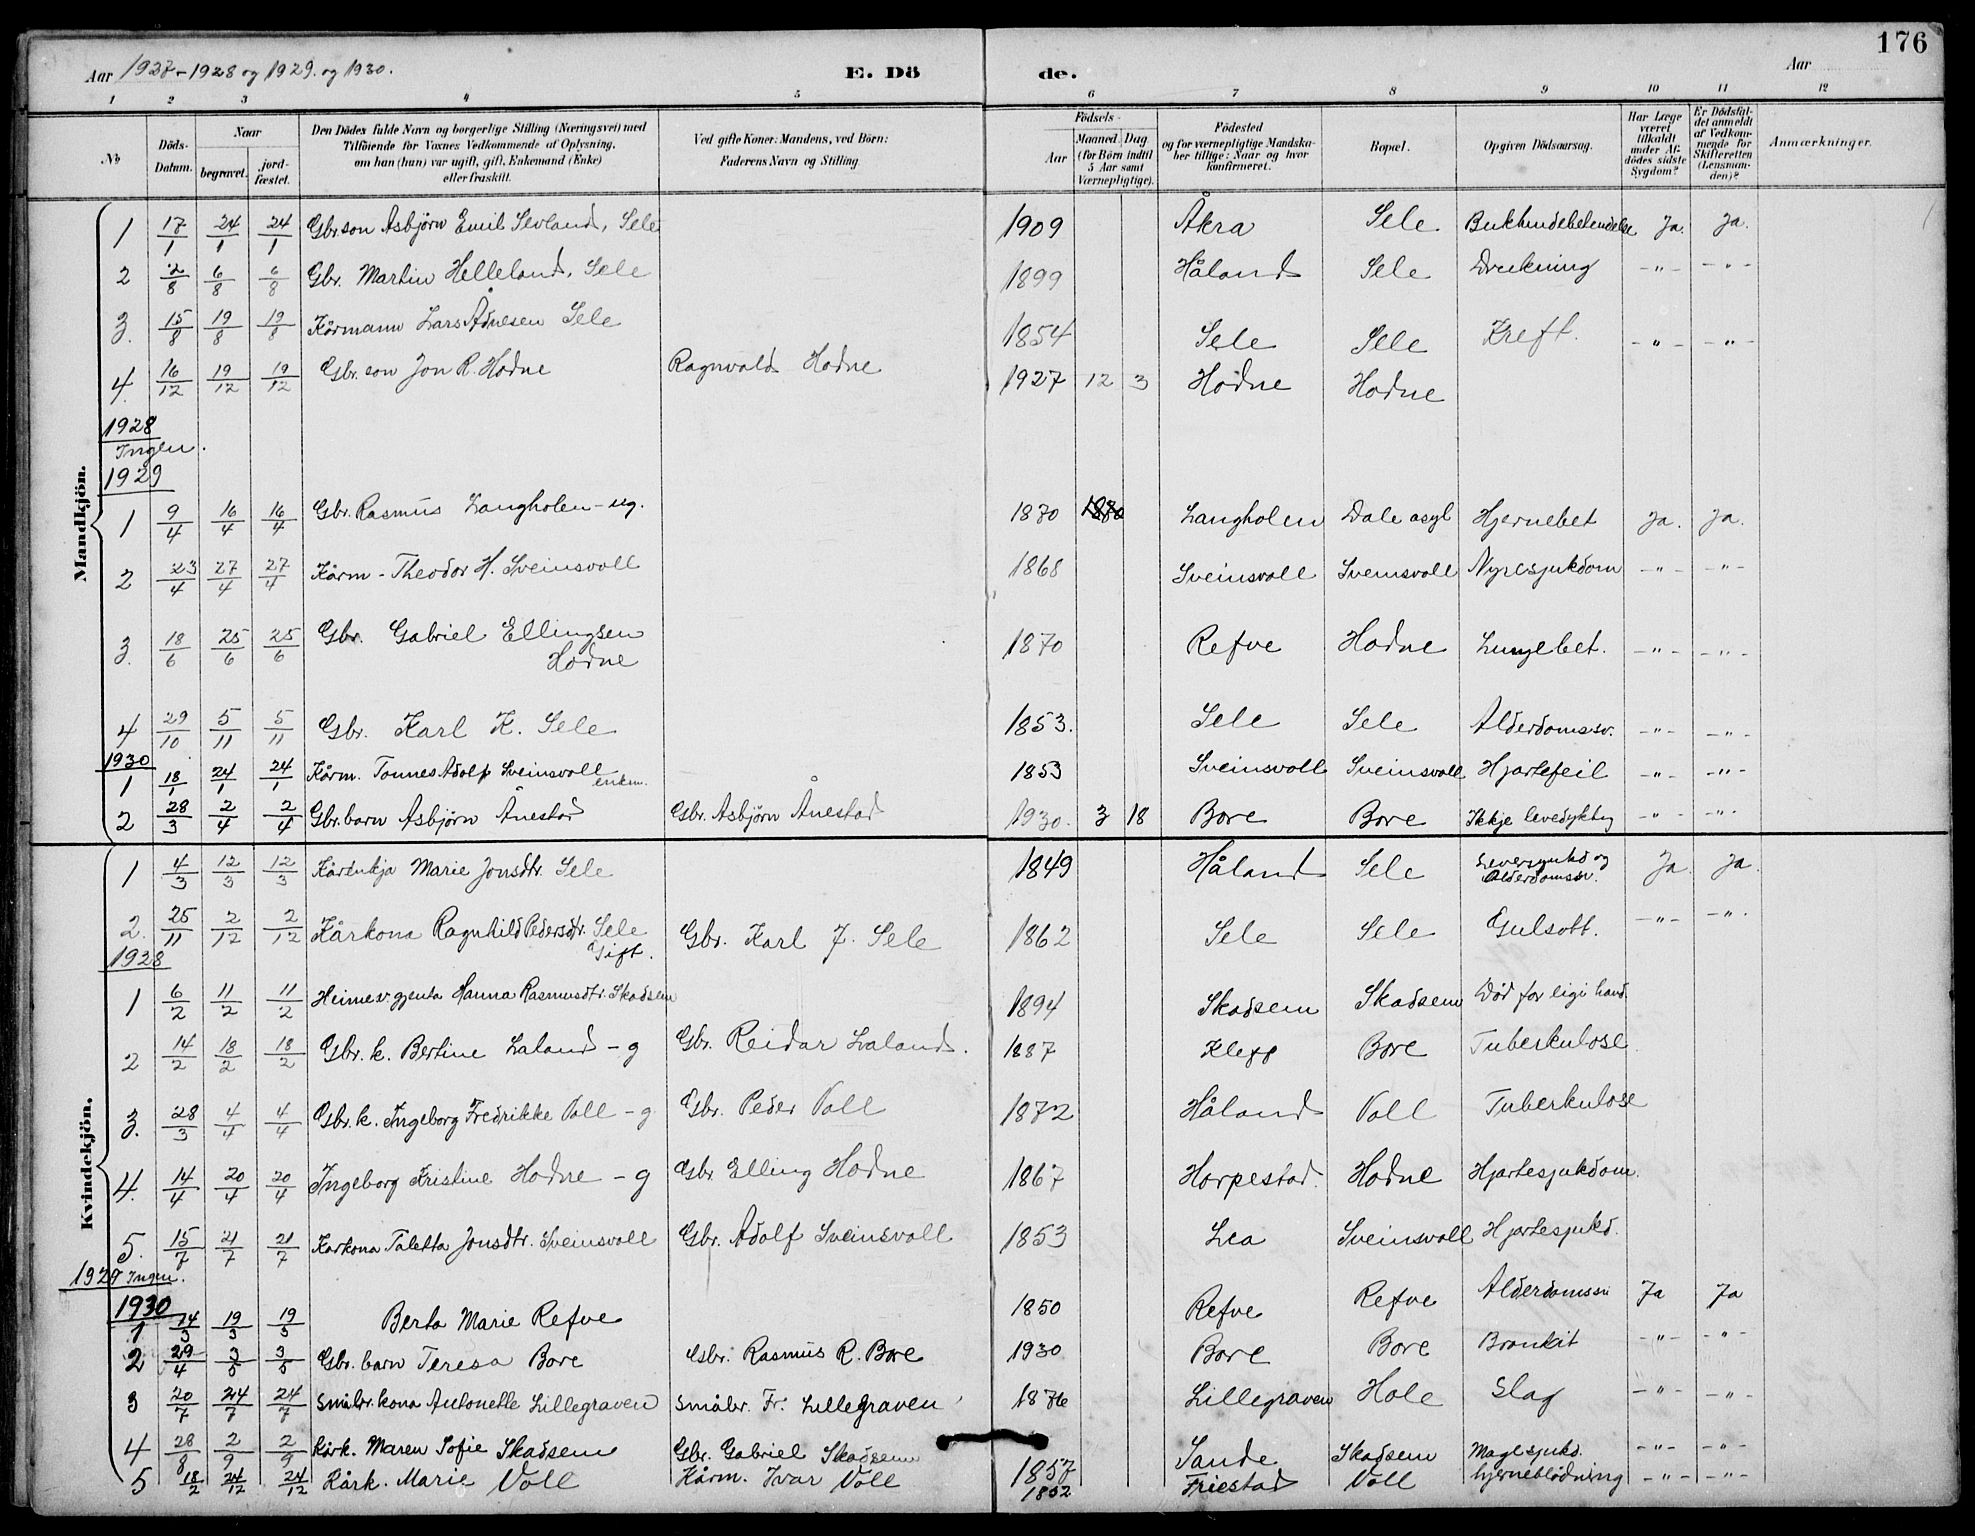 176
Aar 1927-1928 og 1929. og 1930. E. Dö de. Aar
1 2 3 4 5 6 7 8 9 10 11 12
No Döds-Datum. Naar begravet. jord-fæstet. Den Dödes fulde Navn og borgerlige Stilling (Næringsvei) med Tilföiende for Voxnes Vedkommende af Oplysning, om han (hun) var ugift, gift, Enkemand (Enke) eller fraskilt. Ved gifte Koner: Mandens, ved Börn: Faderens Navn og Stilling Födsels- Aar Maaned. Dag (for Börn indtil 5 Aar samt Værnepligtige). Födested og for værnepligtige Mandska-ber tillige: Naar og hvor konfirmeret. Bopæl. Opgiven Dödsaarsag. Har Læge været tilkaldt under Af-dödes sidste Sygdom? Er Dödsfal-det anmeldt af Vedkom-mende for Skifteretten (Lensman-den)? Anmærkninger.
Mandkjön.
1 17/1 24/1 24/1 Gbr.son Asbjörn Emil Sevland, Sele 1909 Åkra Sele Bukhindebetendelse Ja. Ja.
2 2/8 6/8 6/8 Gbr. Martin Helleland, Sele 1899 Håland Sele Drukning -"- -"-
3. 15/8 19/8 19/8 Kårmann Lars Ådnesen Sele 1854 Sele Sele Kreft. -"- -"-
4. 16/12 19/12 19/12 Gbr. son Jon R. Hodne Ragnvald Hodne 1927 12 3 Hodne Hodne
1928
Ingen.
1929
1 9/4 16/4 16/4 Gbr. Rasmus Langholen - ug. 1870 Langholen Dale asyl Hjernebet Ja. Ja.
2 23/4 27/4 27/4 Kårm - Theodor H. Sveinsvoll 1868 Sveinsvoll Sveinsvoll Nyresjukdom -"- -"-
3. 18/6 25/6 25/6 Gbr. Gabriel Ellingsen
Hodne 1870 Refve Hodne Lungebet. -"- -"-
4 29/10 5/11 5/11 Gbr. Karl K. Sele 1853. Sele Sele Alderdomssv. -"- -"-
1930
1 18/1 24/1 24/1 Kårm. Tonnes Adolf Sveinsvoll enkm. 1853 Sveinsvoll Sveinsvoll Hjartefeil -"- -"-
2 28/3 2/4 2/4 Gbr. barn Asbjörn Ånestad Gbr. Asbjörn Ånestad 1930. 3 18 Bore Bore Ikkje levedyktig -"- -"-
Kvindekjön.
1 4/3 12/3 12/3 Kårenkja Marie Jonsdtr. Sele 1849 Håland Sele Leversjukd og
Alderdomssv. Ja Ja
2. 25/11 2/12 2/12 Kårkona Ragnhild Pedersdtr. Sele
Gift. Gbr. Karl J. Sele 1862 Sele Sele Gulsott. -"- -"-
1928
1 6/2 11/2 11/2 Heimev. gjenta Hanna Rasmusdtr. Skadsem 1894 Skadsem Skadsem Död for eigi hand.
2 14/2 18/2 18/2 Gbr. k. Bertine Laland - g Gbr. Reidar Laland. 1887 Klepp Bore Tuberkulose
3. 28/3 4/4 4/4 Gbr. k. Ingeborg Fredrikke Voll - g Gbr. Peder Voll 1872 Håland Voll Tuberkulose
4. 14/4 20/4 20/4 Ingeborg Kristine Hodne - g Gbr Elling Hodne 1867 Horpestad. Hodne Hjartesjukdom.
5. 15/7 21/7 21/7 Kårkona Taletta Jonsdtr. Sveinsvoll Gbr. Adolf Sveinsvoll 1853 Lea Sveinsvoll Hjartesjukd.
1929 Ingen.
1930
1 14/3 19/3 19/3 Berta Marie Refve 1850 Refve Refve Alderdomssv Ja Ja
2 29/4 3/5 3/5 Gbr. barn Teresa Bore Gbr. Rasmus R. Bore 1930 Bore Bore Bronkit -"- -"-
3 20/7 24/7 24/7 Småbr. kona Antonette Lillegraven Småbr. Fr. Lillegraven 1876 Lillegraven Hole Slag -"- -"-
4 28/8 2/9 2/9 Kårk. Maren Sofie Skadsem Gbr. Gabriel Skadsem 1857 Sande Skadsem Magesjukd. -"- -"-
5 18/2 24/12 24/12 Kårk. Marie Voll Kårm. Ivar Voll 1852 Friestad Voll hjerneblödning -"- -"-